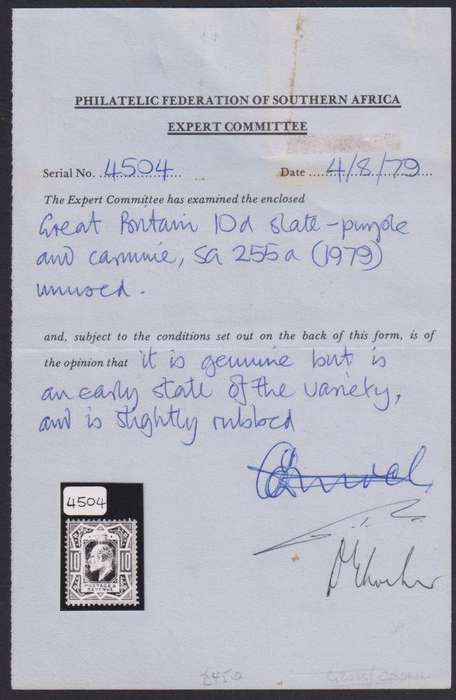 PHILATELIC FEDERATION OF SOUTHERN AFRICA
EXPERT COMMITTEE
Serial No. 4504 Date 4/8/79
The Expert Committee has examined the enclosed
Great Britain 10d slate-purple
and carmine, SG 255a (1979)
unused.
and, subject to the conditions set out on the back of this form, is of
the opinion that it is genuine but is
an early state of the variety,
and is slightly rubbed
4504
10 10
POSTAGE &
REVENUE
£450